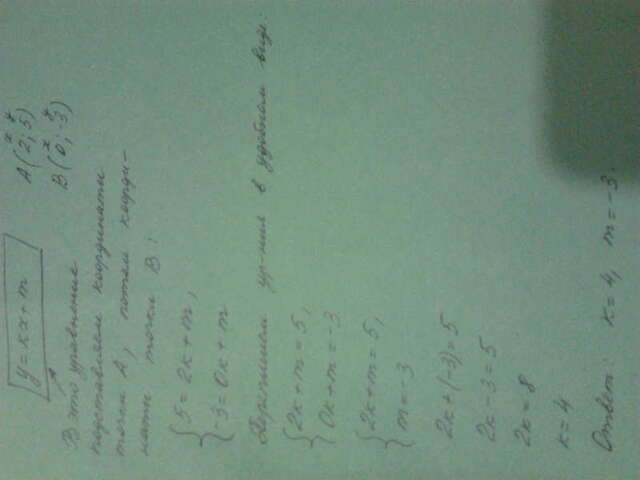 y = kx + m
A(2; 5)
x y
B(0; -3)
x y
В это уравнение
подставляем координаты
точки A, потом коорди-
наты точки B:
{5 = 2k + m,
{-3 = 0k + m
Перепишем ур-ния в удобном виде.
{2k + m = 5,
{0k + m = -3
{2k + m = 5,
{m = -3
2k + (-3) = 5
2k - 3 = 5
2k = 8
k = 4
Ответ: k = 4, m = -3.